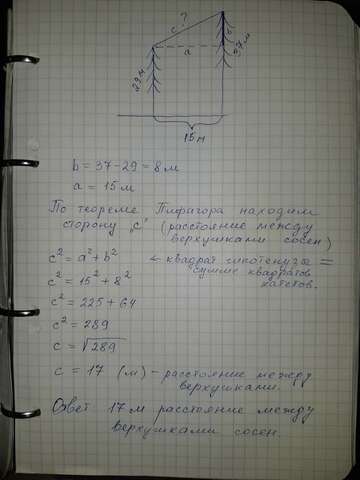 c ?
b
29 м
a
37 м
15 м
b = 37 - 29 = 8 м
a = 15 м
По теореме Пифагора находим
сторону „c" (расстояние между
верхушками сосен)
c² = a² + b² ← квадрат гипотенузы =
сумме квадратов
катетов.
c² = 15² + 8²
c² = 225 + 64
c² = 289
c = √289
c = 17 (м) - расстояние между
верхушками.
Ответ 17 м расстояние между
верхушками сосен.